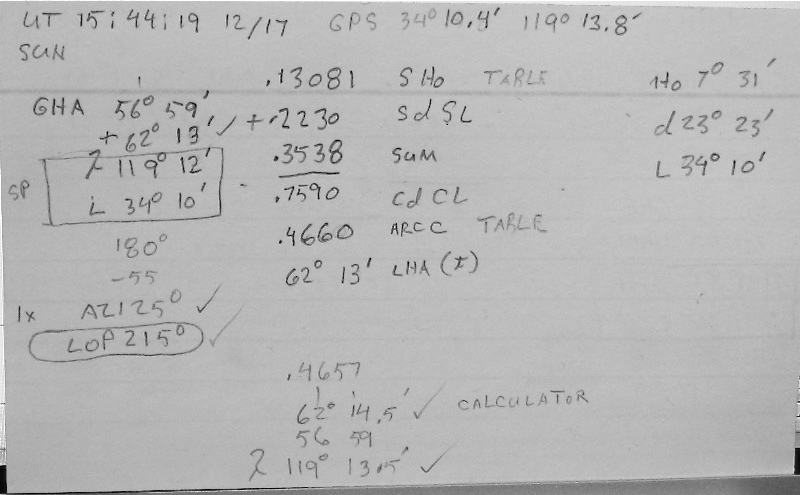 UT 15:44:19 12/17 GPS 34° 10.4' 119° 13.8'
SUN
.13081 S Ho TABLE Ho 7° 31'
GHA 56° 59' + .2230 Sd SL d 23° 23'
+ 62° 13' ✓
λ 119° 12' .3538 SUM L 34° 10'
SP L 34° 10' .7590 Cd CL
180° .4660 ARCC TABLE
-55 62° 13' LHA (I)
1x AZ 125° ✓
LOP 215° ✓
.4657
62° 14.5' ✓ CALCULATOR
56 59
λ 119° 13.5' ✓